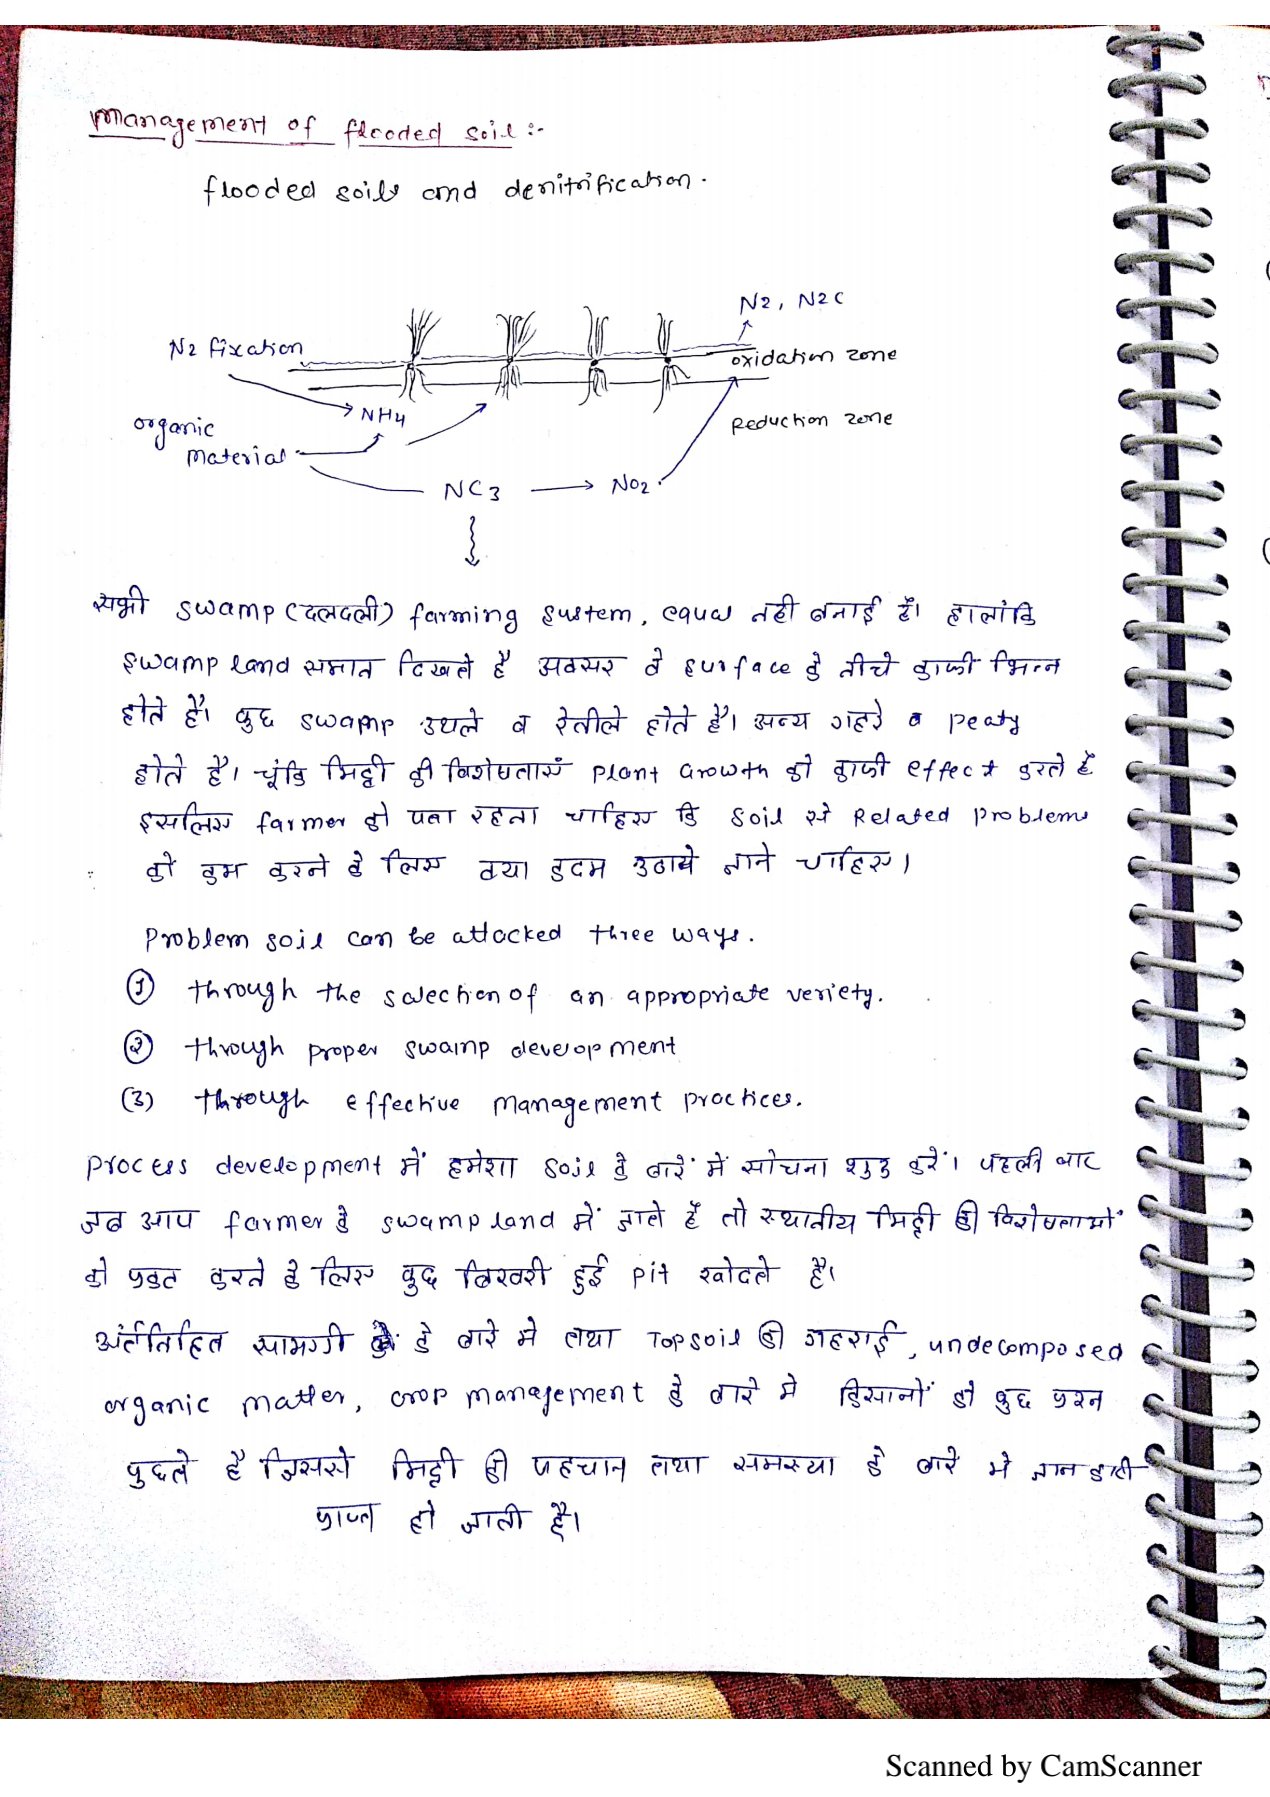 Management of flooded soil :-
flooded soils and denitrification.
N2, N2C
N2 fixation
oxidation zone
NH4
Reduction zone
organic
material
NC3
NO2
सभी swamp (दलदली) farming system, equal नही बनाई हैं। हालांकि
swamp land समान दिखते है अक्सर वे surface के नीचे काफी भिन्न
होते हैं। कुछ swamp उथले व रेतीले होते हैं। अन्य गहरे व peaty
होते है। चूंकि मिट्टी की विशेषताएँ plant Growth को काफी effect करते हैं
इसलिए farmer को पता रहना चाहिए कि soil से Related problems
को कम करने के लिए क्या कदम उठाये जाने चाहिए।
problem soil can be attacked three ways.
(1) through the selection of an appropriate veriety.
(2) through proper swamp development
(3) through effective management practices.
process development में हमेशा soil के बारें में सोचना शुरु करें। पहली बार
जब आप farmer के swamp land में जाते हैं तो स्थानीय मिट्टी की विशेषताओं
को प्रकट करने के लिए कुछ बिखरी हुई pit खोदते है।
अंर्तनिहित सामग्री के बारे मे तथा Topsoil की गहराई, undecomposed
organic matter, crop management के बारे मे किसानों को कुछ प्रश्न
पुछते है जिससे मिट्टी की पहचान तथा समस्या के बारे मे जानकारी
प्राप्त हो जाती है।
Scanned by CamScanner